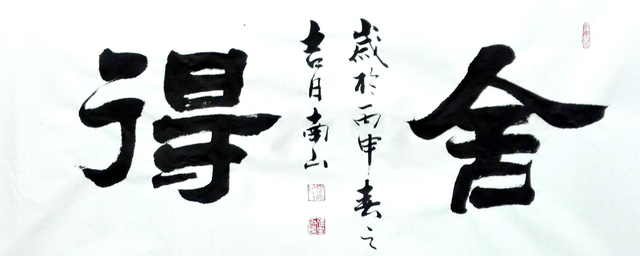 舍
得
歲於丙申春之
吉月南山